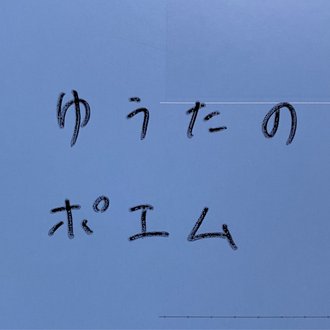 ゆうたの
ポエム